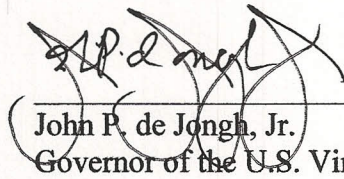 John P. de Jongh, Jr.
Governor of the U.S. Vir